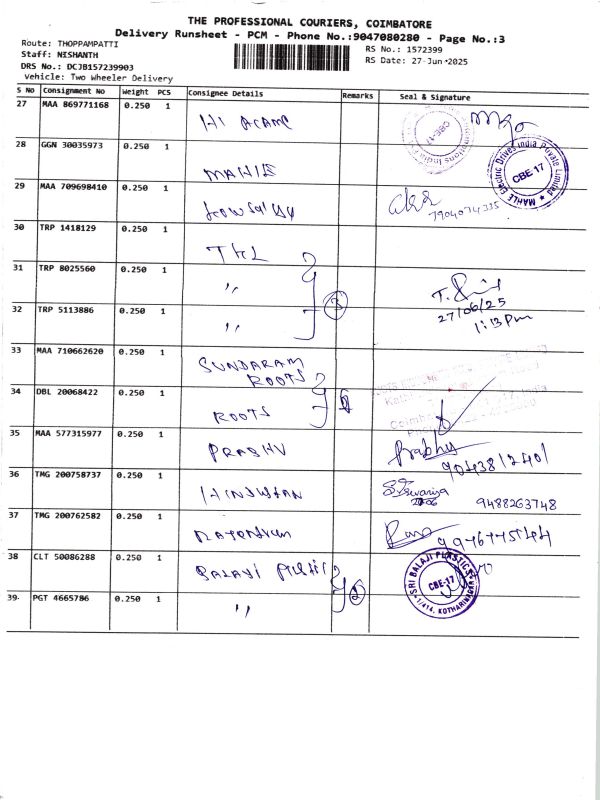 THE PROFESSIONAL COURIERS, COIMBATORE
Delivery Runsheet - PCM - Phone No.:9047080280 - Page No.:3
Route: THOPPAMPATTI
Staff: NISHANTH
RS No.: 1572399
DRS No.: DCJB157239903
RS Date: 27-Jun-2025
Vehicle: Two Wheeler Delivery
S No Consignment No Weight PCS Consignee Details Remarks Seal & Signature
27 MAA 869771168 0.250 1
CBE-17
28 GGN 30035973 0.250 1 MAHLE
MAHLE Electric Drives India Private Limited CBE 17
29 MAA 709698410 0.250 1 Kowsalya
7904074335
30 TRP 1418129 0.250 1 TKL
31 TRP 8025560 0.250 1 "
3
27/06/25
1:13 Pm
32 TRP 5113886 0.250 1 "
33 MAA 710662620 0.250 1 SUNDARAM
ROOTS
34 DBL 20068422 0.250 1 ROOTS
35 MAA 577315977 0.250 1 PRABHU Prabhu
9043812401
36 TMG 200758737 0.250 1 HINDUSTAN
9488263748
37 TMG 200762582 0.250 1
9976775144
38 CLT 50086288 0.250 1 BALAJI
2
SRI BALAJI PLASTICS CBE-17
39 PGT 4665786 0.250 1 "